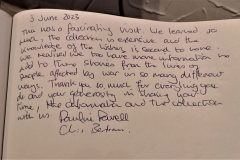 3 June 2023
This was a fascinating visit. We learned so
much, the collection is extensive and the
knowledge of the library is second to none.
We realised to have more information
add to these stories from the lives of
people affected by war in so many different
ways. Thank you so much for everything you
do and your generosity in sharing your
time, the information and the collection
with us Pauline Powell